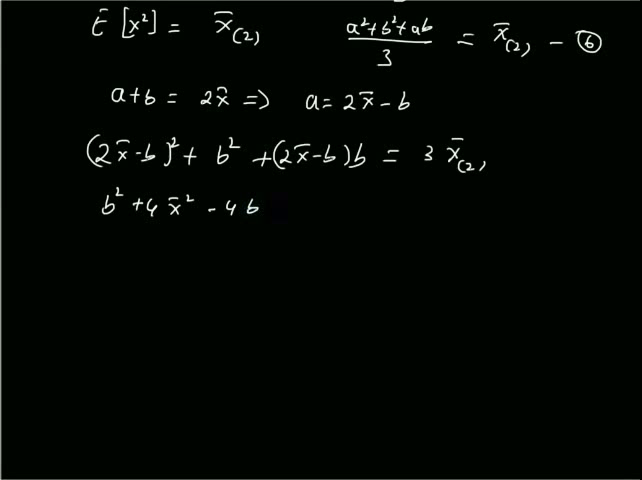 E [x²] = x̄₍₂₎   (a²+b²+ab)/3 = x̄₍₂₎ - ⑥
a+b = 2x̄ => a = 2x̄ - b
(2x̄-b)² + b² + (2x̄-b)b = 3 x̄₍₂₎
b² + 4x̄² - 4b